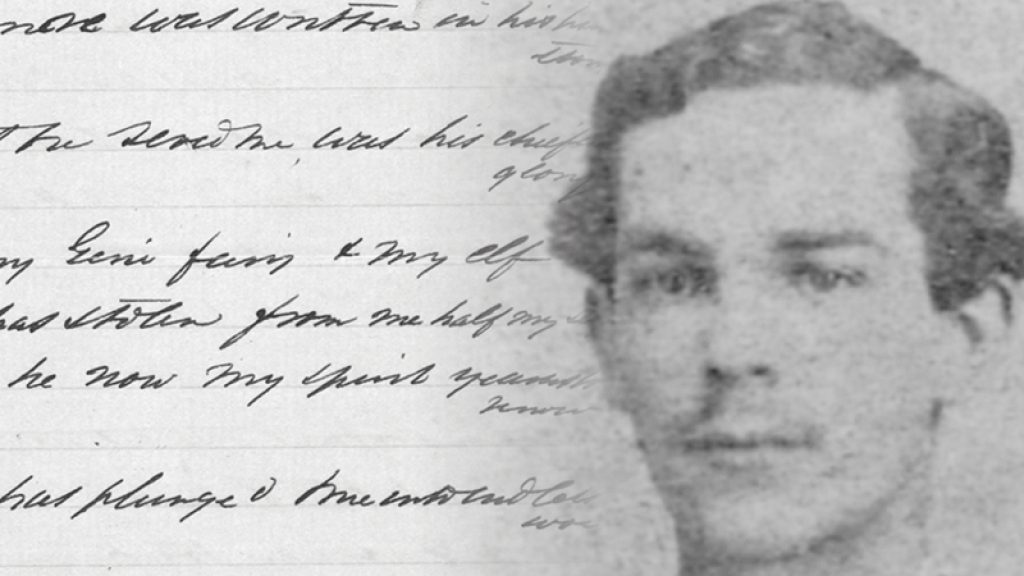 more was written in his
the served me, was his chief
glory
my Geni fairy & my elf
has stolen from me half my
he now my spirit
has plunge'd me into endless
woe